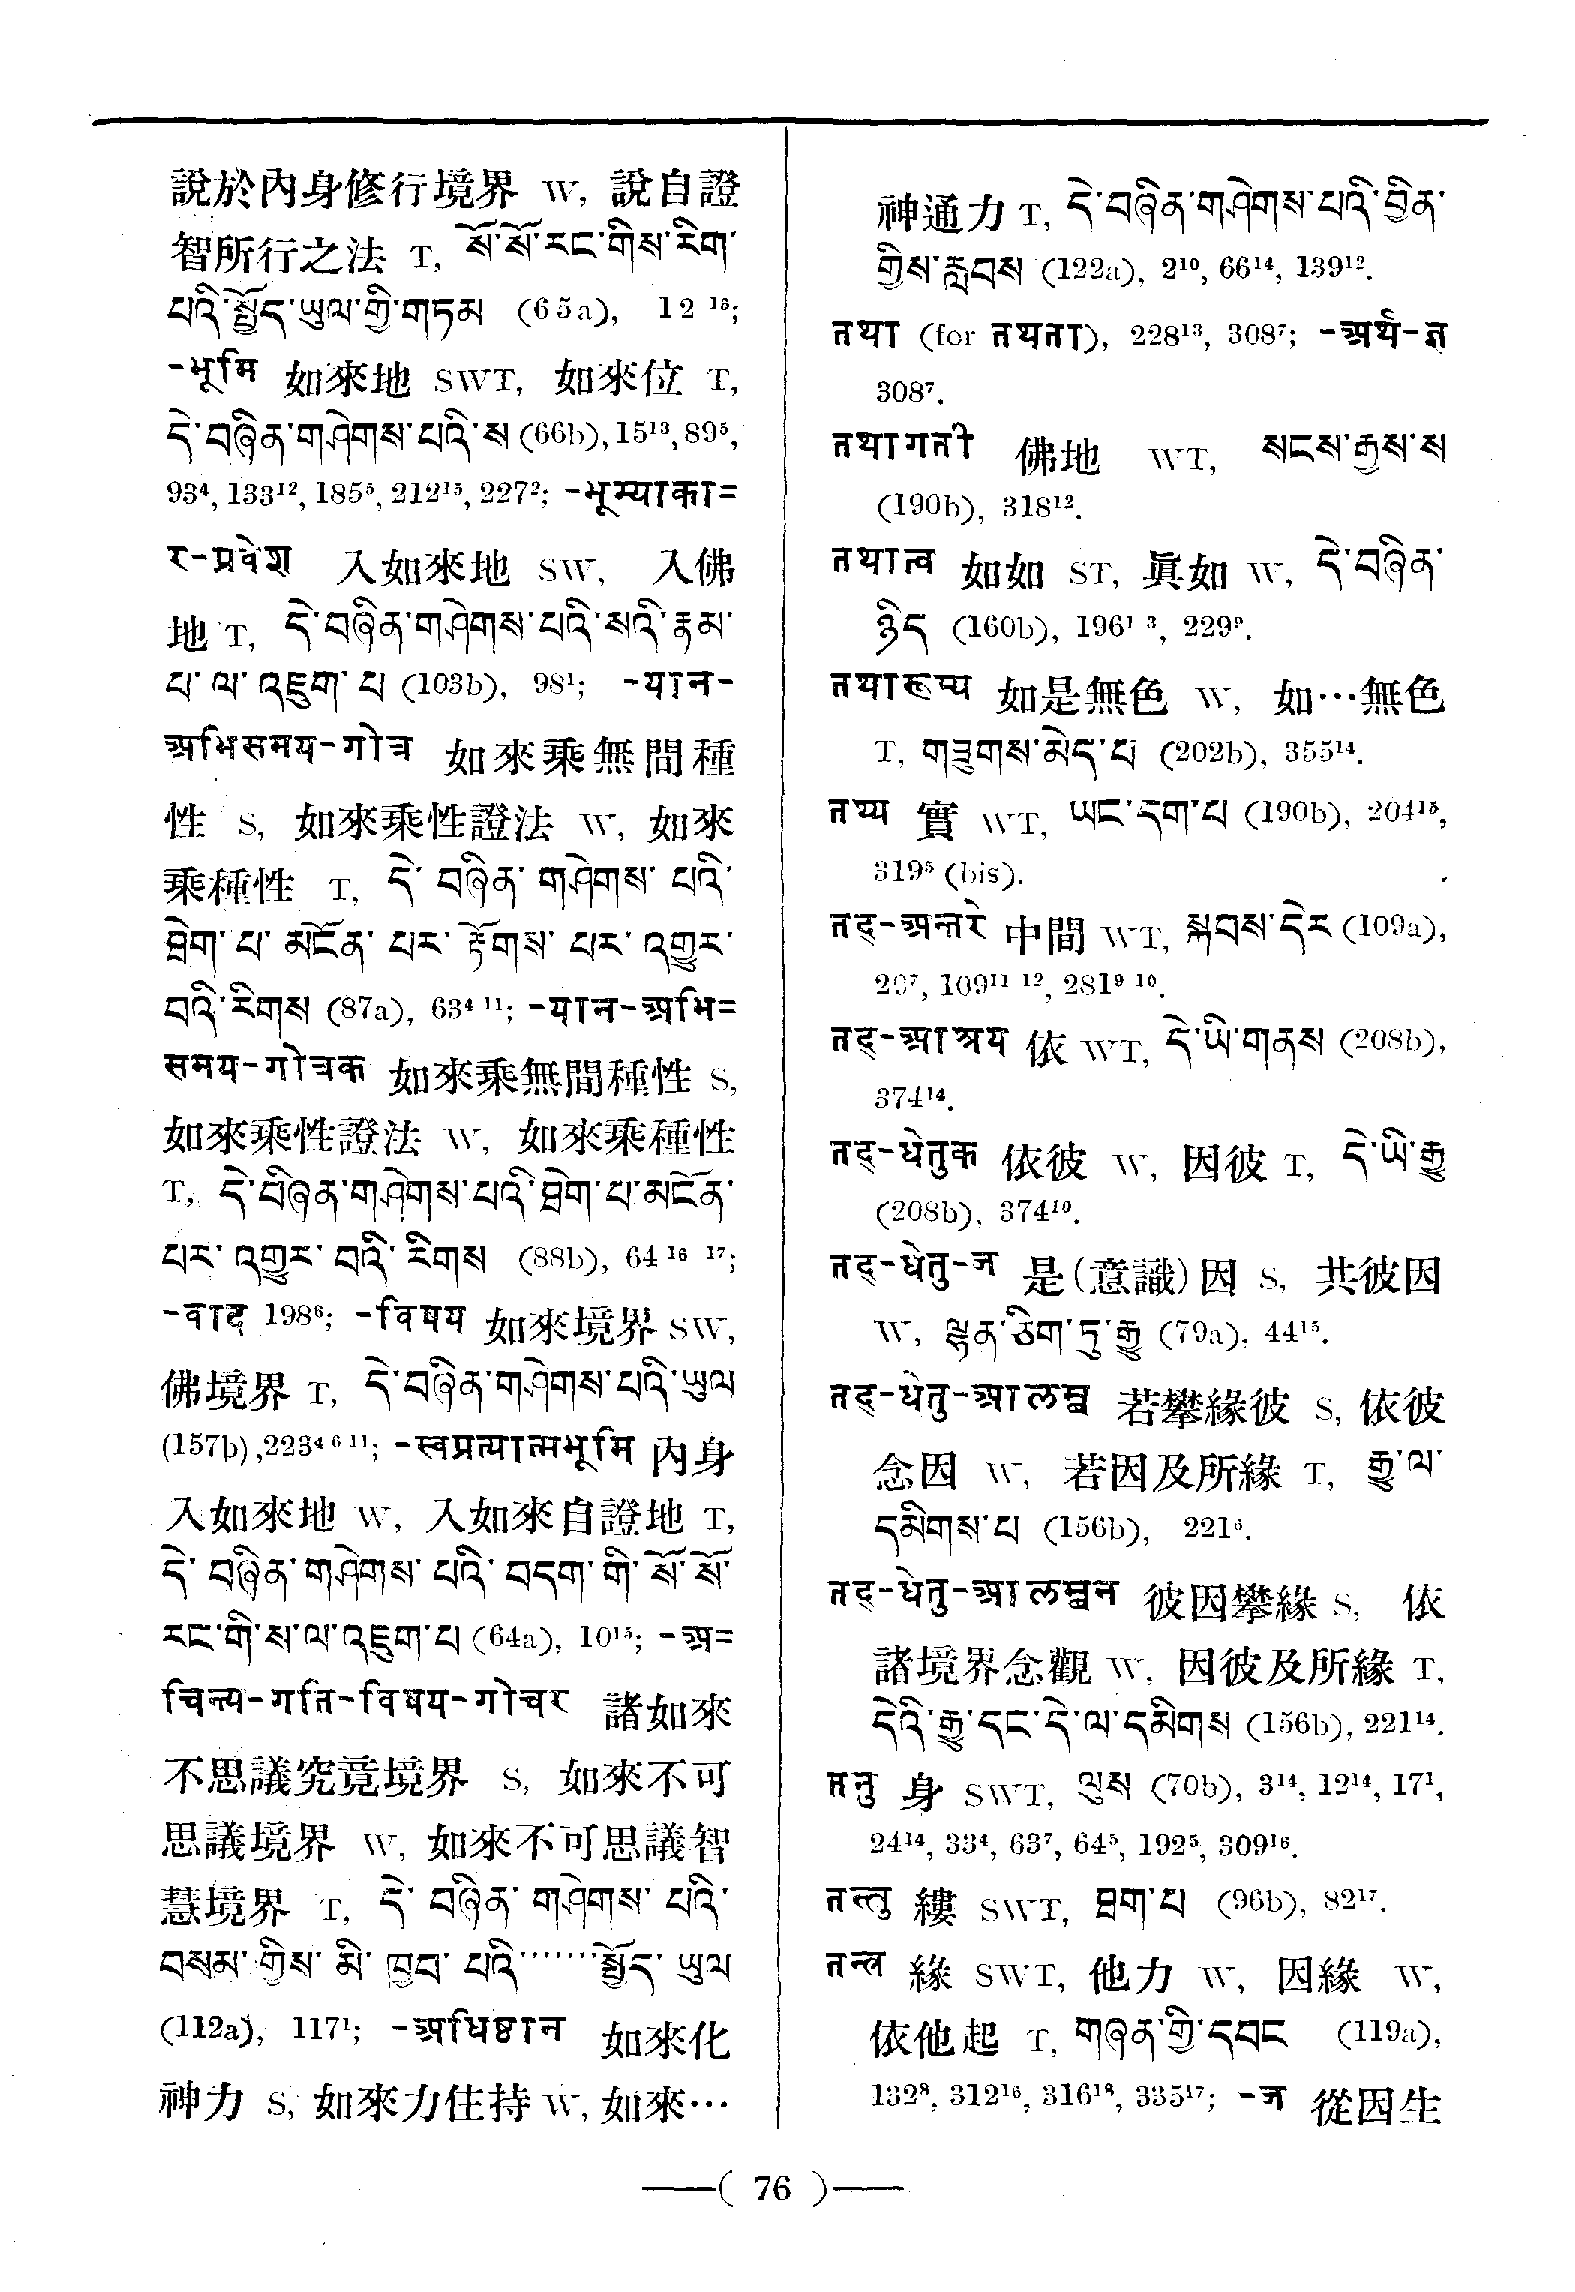 說於內身修行境界 W, 說自證
智所行之法 T, སོ་སོ་རང་གིས་རིག་
པའི་སྤྱོད་ཡུལ་གྱི་གཏམ (65a), 12¹⁵;
-भूमि 如來地 SWT, 如來位 T,
དེ་བཞིན་གཤེགས་པའི་ས (66b), 15¹³, 89⁵,
93⁴, 133¹², 185⁵, 212¹⁵, 227²; -भूम्याका=
र-प्रवेश 入如來地 SW, 入佛
地 T, དེ་བཞིན་གཤེགས་པའི་སའི་རྣམ་
པ་ ལ་ འཇུག་ པ (103b), 98¹; -यान-
अभिसमय-गोत्र 如來乘無間種
性 S, 如來乘性證法 W, 如來
乘種性 T, དེ་ བཞིན་ གཤེགས་ པའི་
ཐེག་ པ་ མངོན་ པར་ རྟོགས་ པར་ འགྱུར་
བའི་རིགས (87a), 63⁴ ¹¹; -यान-अभि=
समय-गोत्रक 如來乘無間種性 S,
如來乘性證法 W, 如來乘種性
T, དེ་བཞིན་གཤེགས་པའི་ཐེག་པ་མངོན་
པར་ འགྱུར་ བའི་ རིགས (88b), 64¹⁶ ¹⁷;
-वाद 198⁶; -विषय 如來境界 SW,
佛境界 T, དེ་བཞིན་གཤེགས་པའི་ཡུལ
(157b), 223⁴ ⁶ ¹¹; -स्वप्रत्यात्मभूमि 內身
入如來地 W, 入如來自證地 T,
དེ་ བཞིན་ གཤེགས་ པའི་ བདག་ གི་ སོ་ སོ་
རང་གི་ས་ལ་འཇུག་པ (64a), 10¹⁵; -अ=
चिन्त्य-गति-विषय-गोचर 諸如來
不思議究竟境界 S, 如來不可
思議境界 W, 如來不可思議智
慧境界 T, དེ་ བཞིན་ གཤེགས་ པའི་
བསམ་ གྱིས་ མི་ ཁྱབ་ པའི་······སྤྱོད་ ཡུལ
(112a), 117¹; -अधिष्ठान 如來化
神力 S, 如來力住持 W, 如來…
神通力 T, དེ་བཞིན་གཤེགས་པའི་བྱིན་
གྱིས་རླབས (122a), 2¹⁰, 66¹⁴, 139¹².
तथा (for तथता), 228¹³, 308⁷; -अर्थ-ज्ञ
308⁷.
तथागती 佛地 WT, སངས་རྒྱས་ས
(190b), 318¹².
तथात्व 如如 ST, 眞如 W, དེ་བཞིན་
ཉིད (160b), 196¹ ³, 229⁹.
तथारूप्य 如是無色 W, 如…無色
T, གཟུགས་མེད་པ (202b), 355¹⁴.
तथ्य 實 WT, ཡང་དག་པ (190b), 204¹⁵,
319⁵ (bis).
तद्-अन्तरे 中間 WT, སྐབས་དེར (109a),
20⁷, 109¹¹ ¹², 281⁹ ¹⁰.
तद्-आश्रय 依 WT, དེ་ཡི་གནས (208b),
374¹⁴.
तद्-धेतुक 依彼 W, 因彼 T, དེ་ཡི་རྒྱུ
(208b), 374¹⁰.
तद्-धेतु-ज 是(意識)因 S, 共彼因
W, ལྷན་ཅིག་ཏུ་རྒྱུ (79a), 44¹⁵.
तद्-धेतु-आलम्ब 若攀緣彼 S, 依彼
念因 W, 若因及所緣 T, རྒྱུ་ལ་
དམིགས་པ (156b), 221⁶.
तद्-धेतु-आलम्बन 彼因攀緣 S, 依
諸境界念觀 W, 因彼及所緣 T,
དེའི་རྒྱུ་དང་དེ་ལ་དམིགས (156b), 221¹⁴.
तनु 身 SWT, ལུས (70b), 3¹⁴, 12¹⁴, 17¹,
24¹⁴, 33⁴, 63⁷, 64⁵, 192⁵, 309¹⁶.
तन्तु 縷 SWT, ཐག་པ (96b), 82¹⁷.
तन्त्र 緣 SWT, 他力 W, 因緣 W,
依他起 T, གཞན་གྱི་དབང (119a),
132⁸, 312¹⁶, 316¹⁸, 335¹⁷; -ज 從因生
—( 76 )—